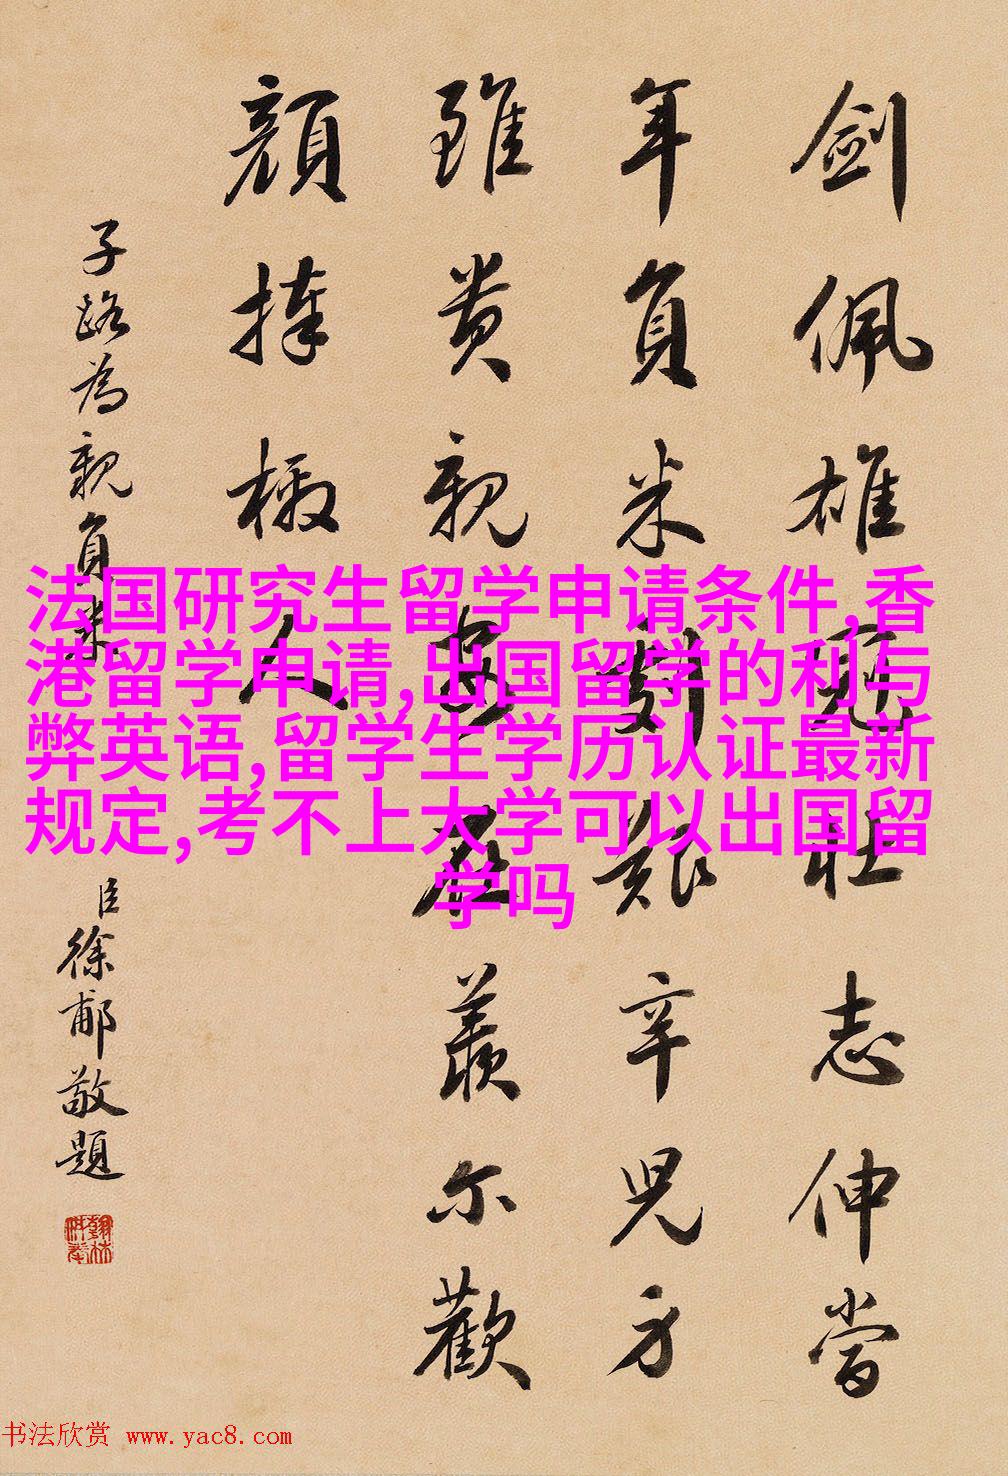 劍佩雄冠壯志伸當
年負米對艱辛兒身
雖貴親安在羨尔歡
顏捧檄人
子路為親負米
臣徐郙敬題
法国研究生留学申请条件,香
港留学申请,出国留学的利与
弊英语,留学生学历认证最新
规定,考不上大学可以出国留
学吗
书法欣赏 www.yac8.com